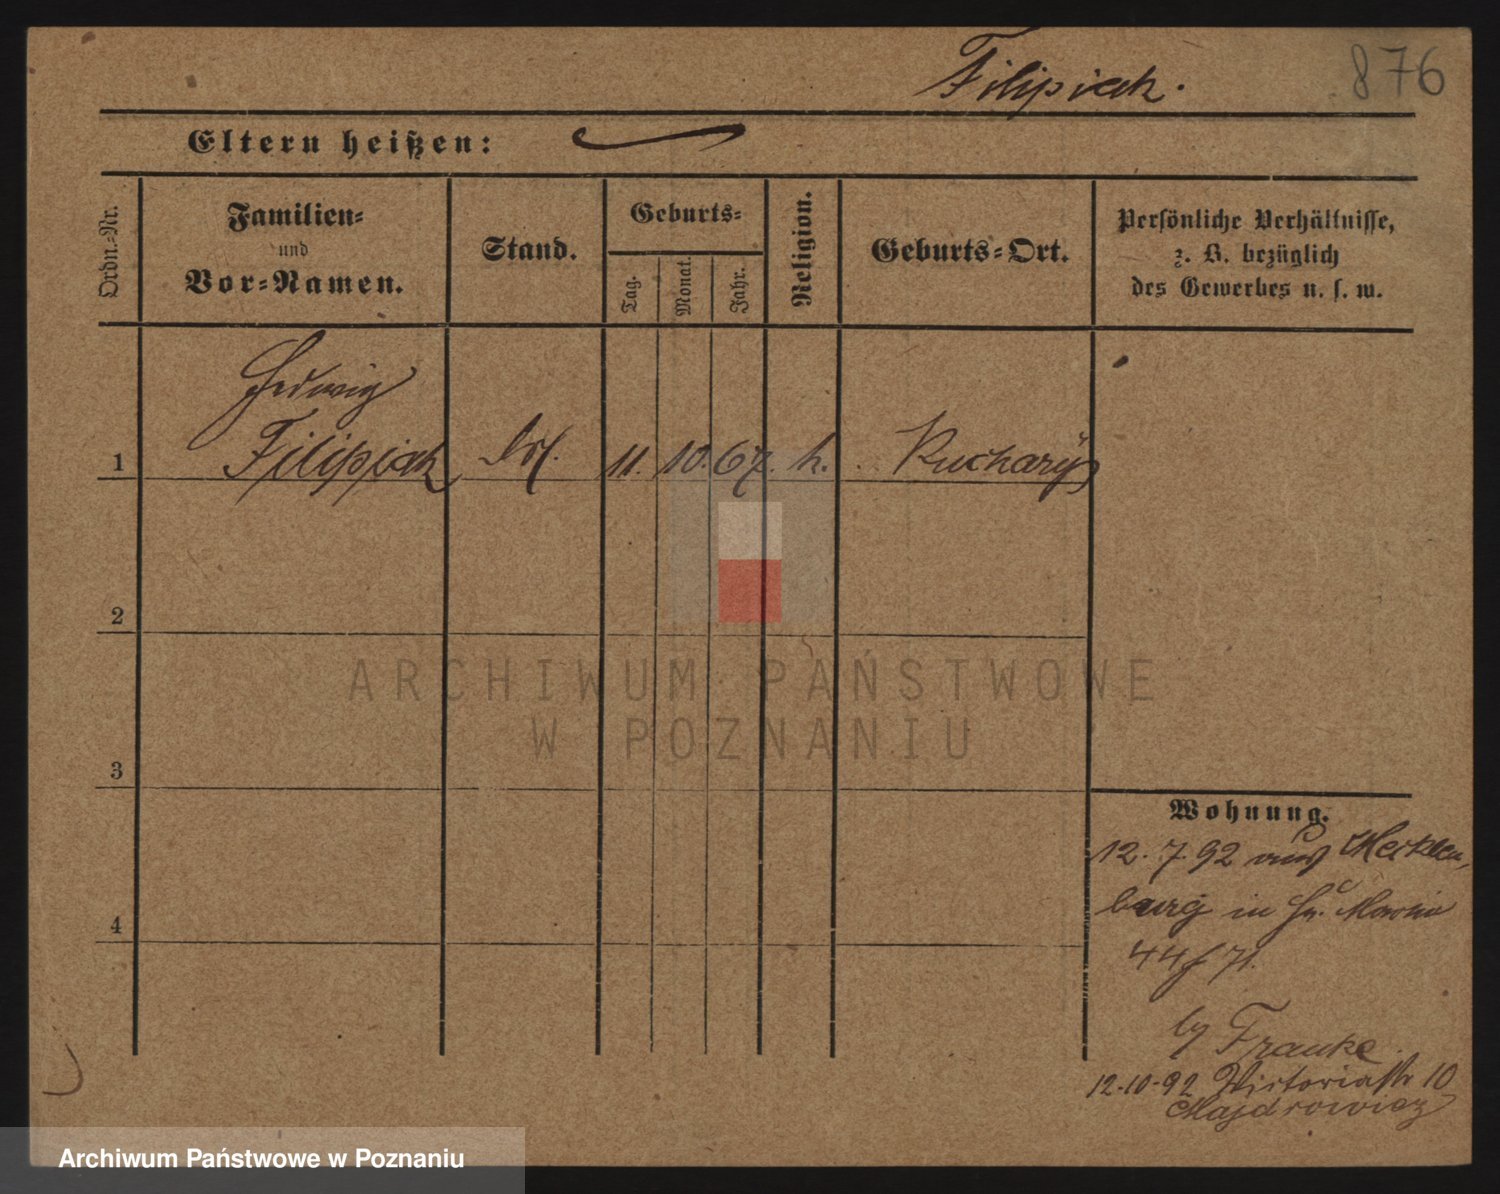 Filipiak.
876
Eltern heißen:
Ordn.-Nr.
Familien-
und
Vor-Namen.
Stand.
Geburts-
Tag.
Monat.
Jahr.
Religion.
Geburts-Ort.
Persönliche Verhältnisse,
z. B. bezüglich
des Gewerbes u. s. w.
Hedwig
1 Filipiak 11. 10. 67. k. Kucharÿ
2
3
4
ARCHIWUM PAŃSTWOWE
W POZNANIU
Wohnung.
12. 7. 92 aus Mecklen-
burg in
44 71.
Franke
12-10-92 Victoriastr 10
Majdrowicz
Archiwum Państwowe w Poznaniu